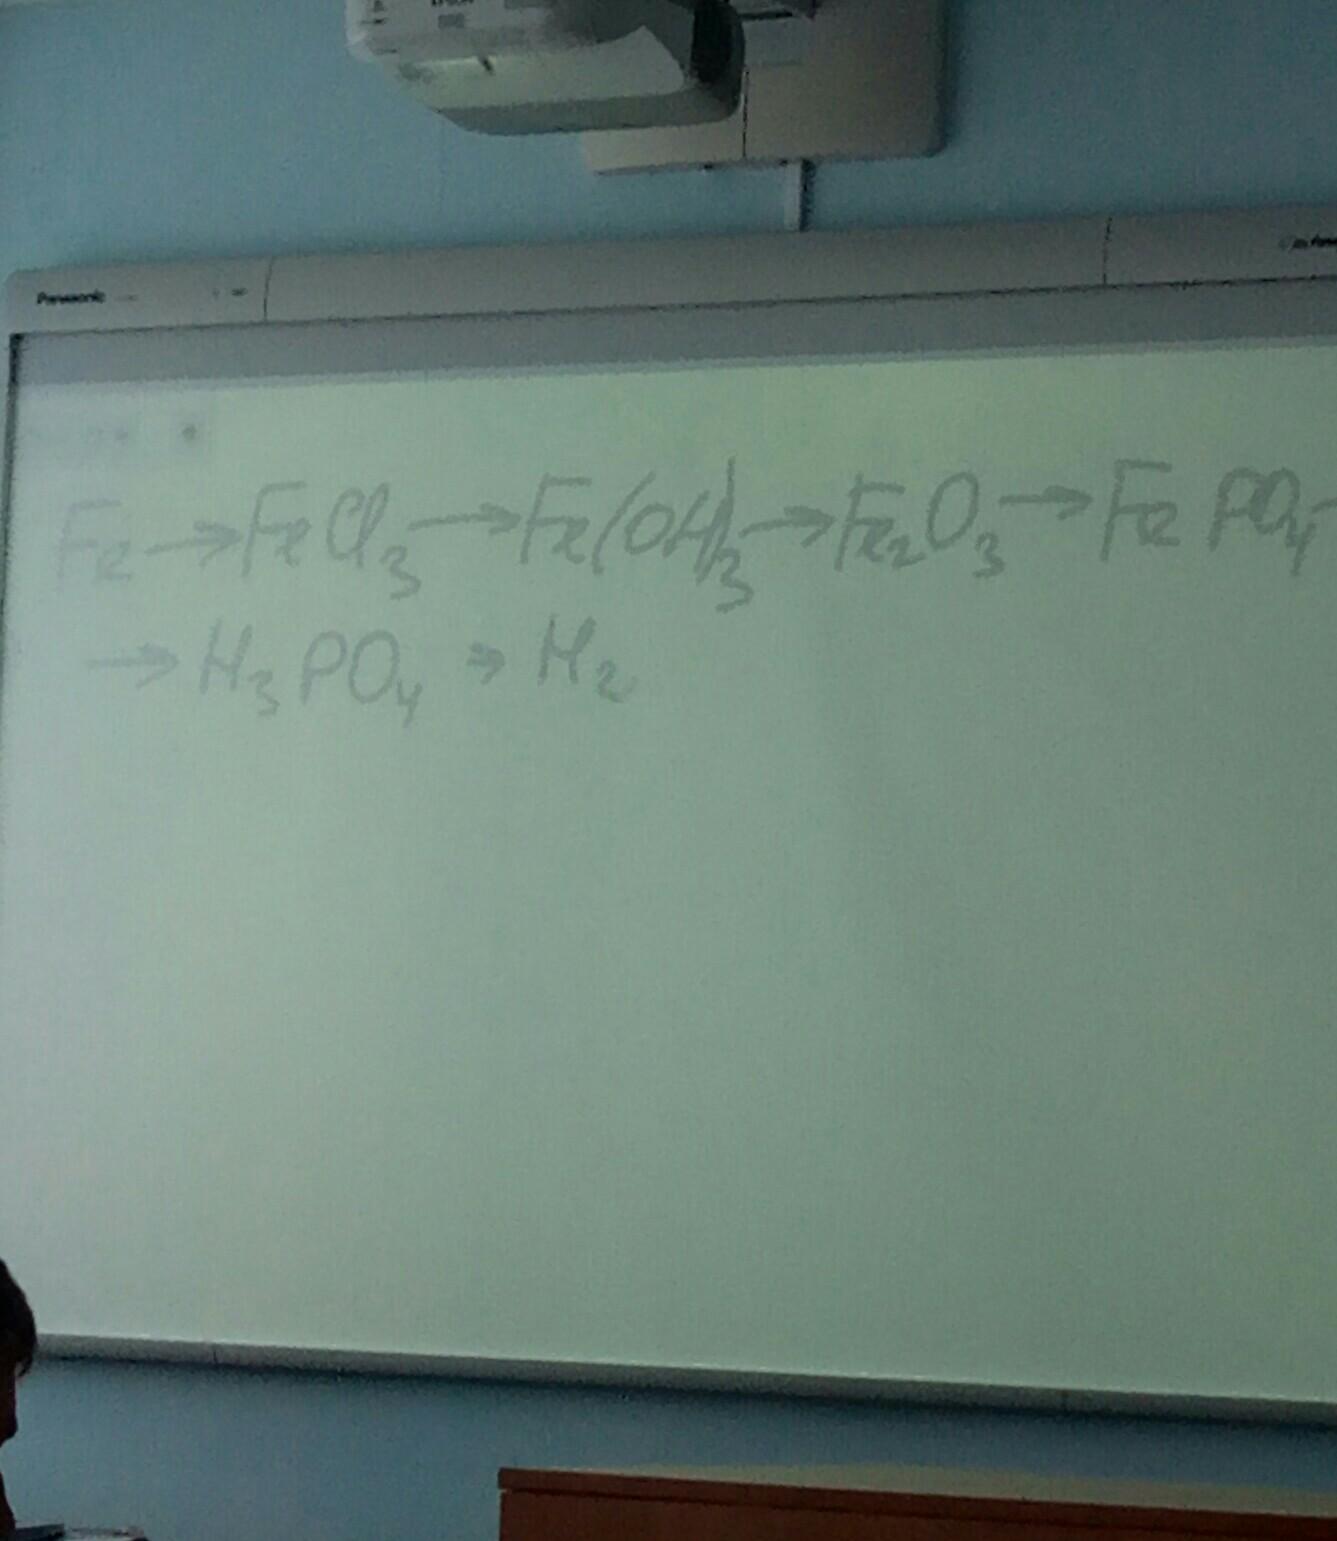 EPSON
Panasonic
Fe → FeCl₃ → Fe(OH)₃ → Fe₂O₃ → FePO₄ -
→ H₃PO₄ → H₂